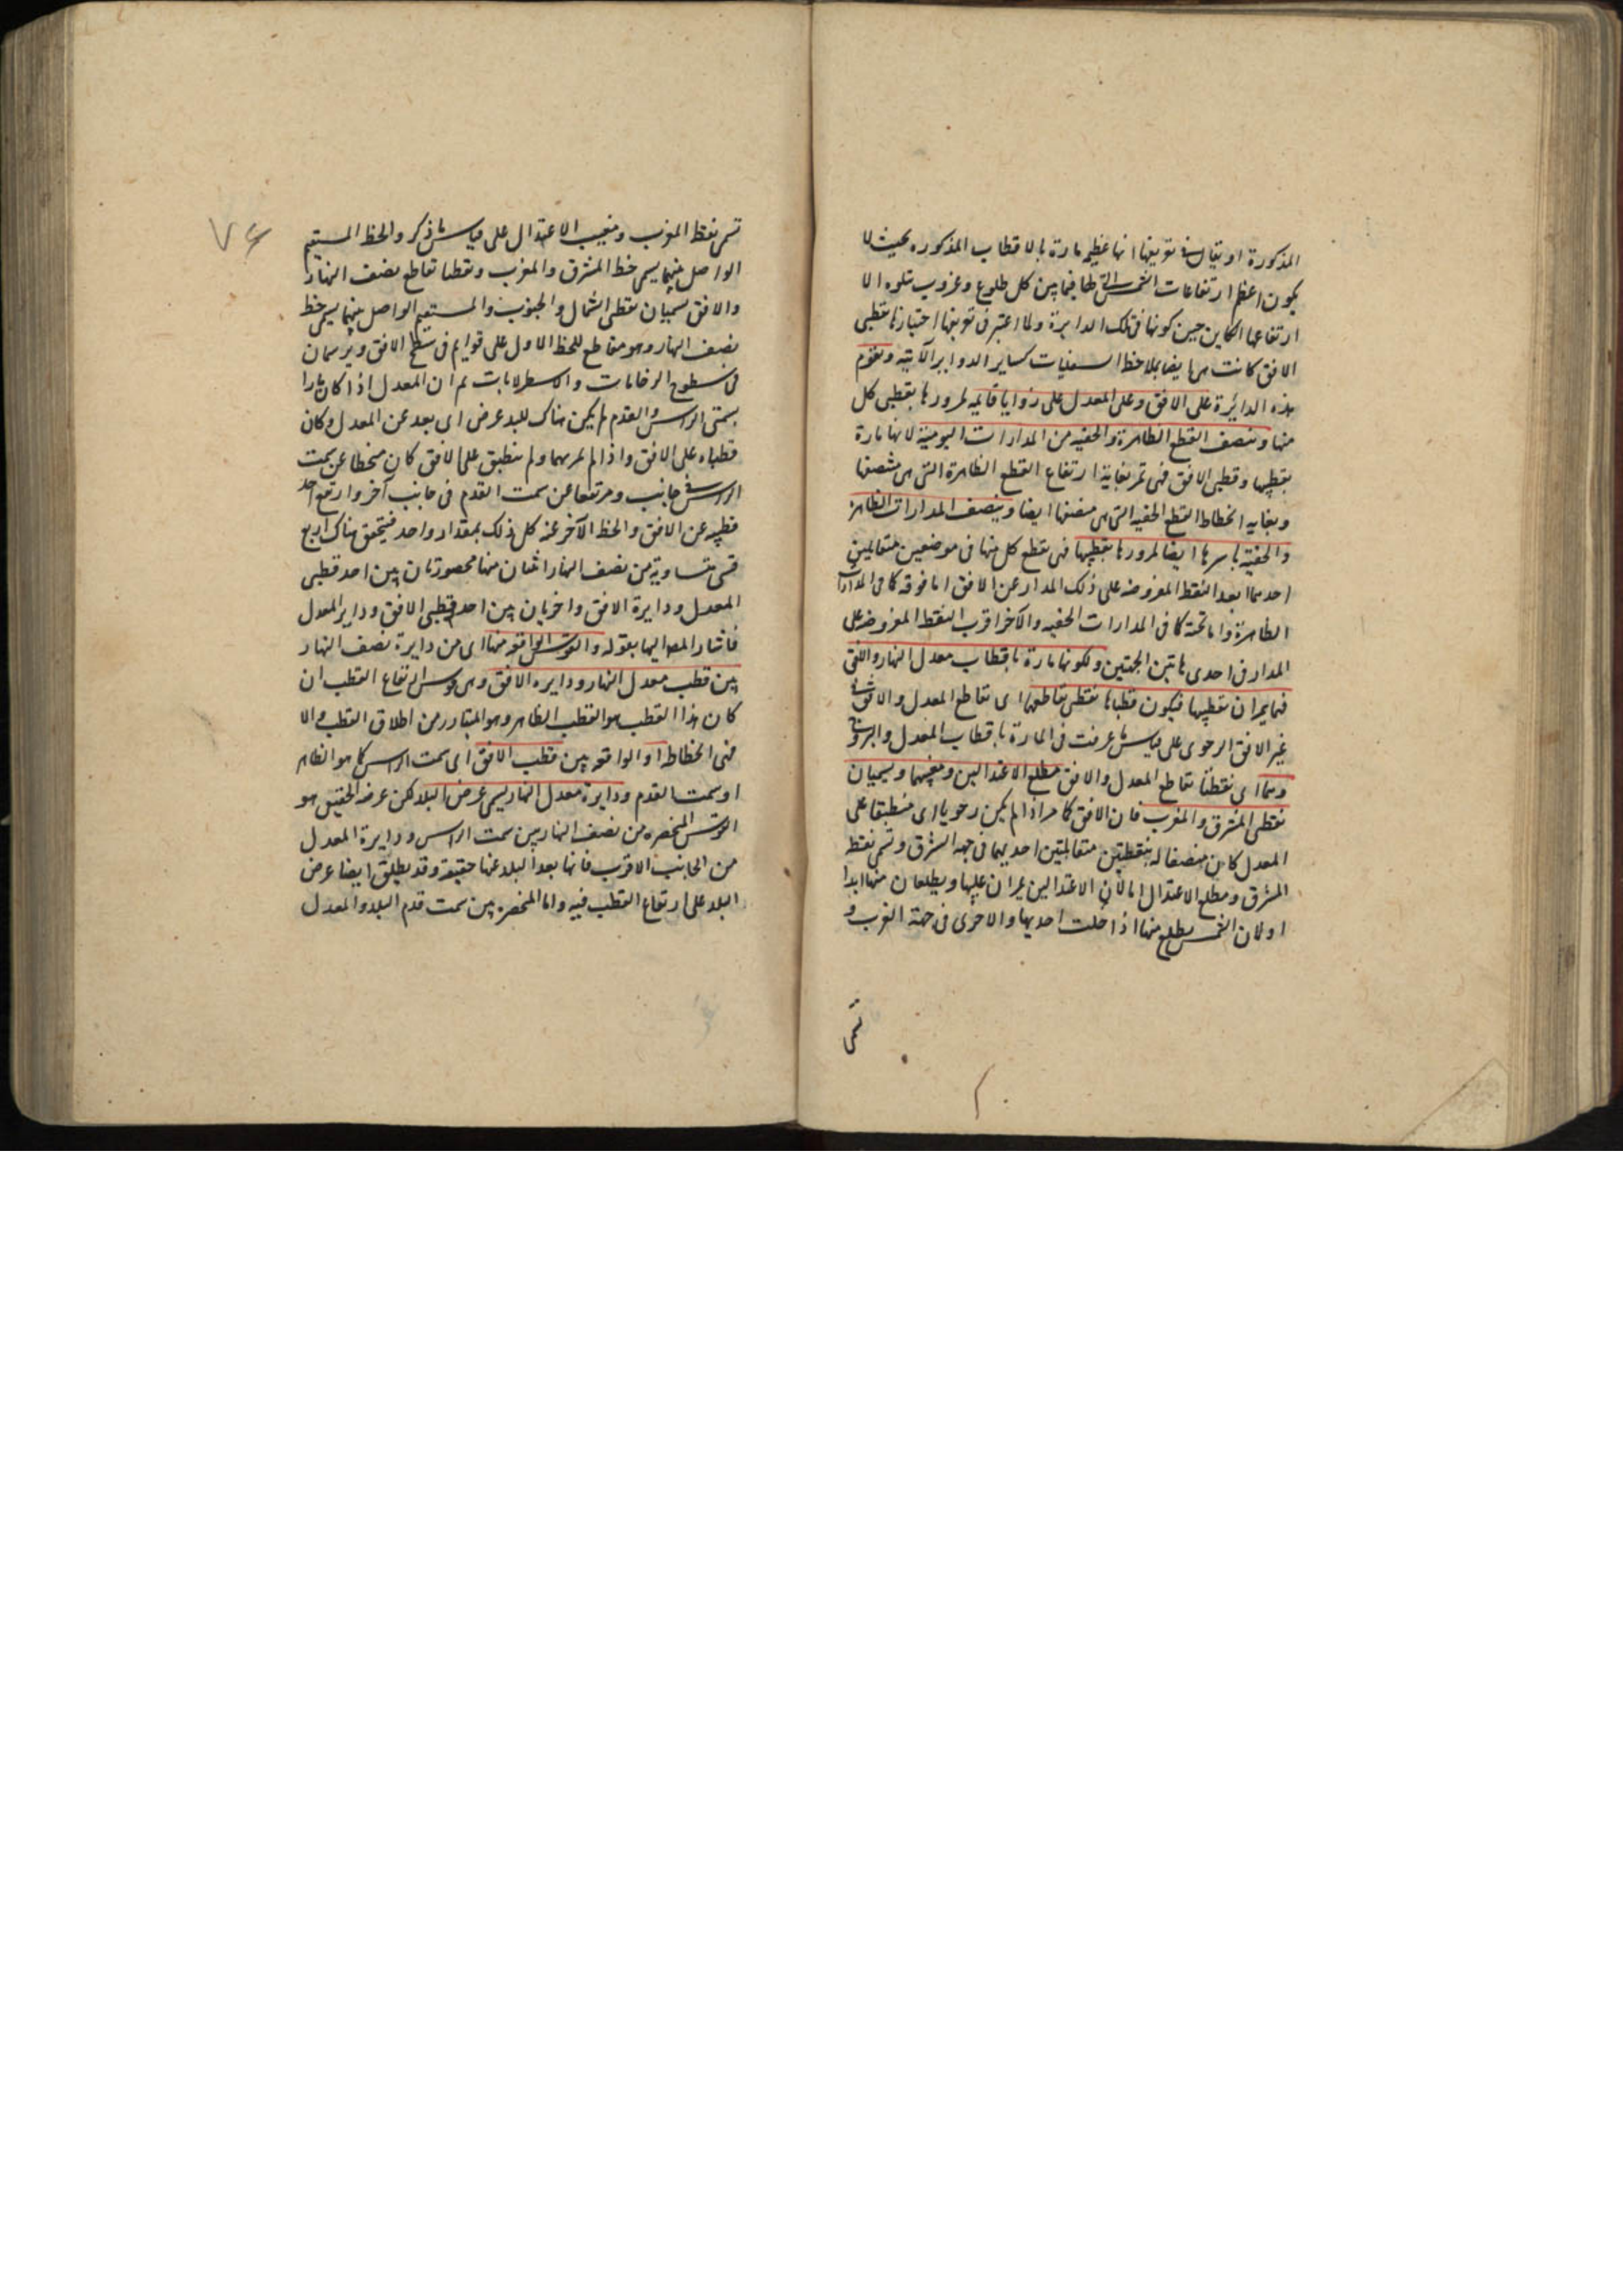 المذكورة او يقال في تعريفها انها عظيمة مارة بالاقطاب المذكوره بحيث لا
يكون اعظم ارتفاعات الشمس التي لها فيما بين كل طلوع وغروب يتلوه الا
ارتفاعها الكاين حين كونها في تلك الدايرة ولما اعتبر في تعريفها اختيارنا قطبي
الافق كانت هي ايضا بملاحظ السفليات كساير الدواير الآتية وتقوم
هذه الدائرة على الافق وعلى المعدل على زوايا قائمه لمرورها بقطبي كل
منها وتنصف القطع الظاهرة والخفيه من المدارات اليومية لانها مارة
بقطبيها وقطبي الافق فهي تمر بغاية ارتفاع القطع الظاهرة التي هي منتصفها
وبغايه انحطاط القطع الخفيه التي هي منتصفها ايضا وينصف المدارات الظاهرة
والخفية باسرها ايضا لمرورها بقطبيها فهي تقطع كل منها في موضعين متقابلين
احدهما ابعد النقط المفروضه على ذلك المدار عن الافق اما فوقه كما في المدارات
الظاهرة واما تحته كما في المدارات الخفيه والآخر اقرب النقط المفروضه على
المدار في احدى هاتين الجهتين ولكونها مارة باقطاب معدل النهار والافق
فهما يمران بقطبيها فيكون قطباها نقطتي تقاطعهما اي تقاطع المعدل والافق في
غير الافق الرحوى على قياس ما عرفت في المارة باقطاب المعدل والبروج
وهما اى نقطتا تقاطع المعدل والافق مطلع الاعتدالين ومغيبهما ويسميان
نقطتى المشرق والمغرب فان الافق كما مر اذا لم يكن رحويا اى منطبقا على
المعدل كاين منصفا له بنقطتين متقابلتين احديهما في جهة الشرق وتسمى نقطة
المشرق ومطلع الاعتدال اما لان الاعتدالين يمران عليها ويطلعان منها ابدا
او لان الشمس يطلع منها اذا حلت احديهما والاخرى في جهة الغرب و
تسمى
٧٤
تسمى نقطة المغرب ومغيب الاعتدال على قياس ما ذكر والخط المستقيم
الواصل بينهما يسمى خط المشرق والمغرب ونقطتا تقاطع نصف النهار
والافق تسميان نقطتى الشمال والجنوب والمستقيم الواصل بينهما يسمى خط
نصف النهار وهو مقاطع للخط الاول على قوايم في سطح الافق ويرسمان
في سطوح الرخامات والاسطرلابات ثم ان المعدل اذا كان مارا
بسمتى الراس والقدم لم يكن هناك للبلد عرض اى بعد عن المعدل وكان
قطباه على الافق واذا لم يمر بهما ولم ينطبق على الافق كان منحطا عن سمت
الراس في جانب ومرتفعا عن سمت القدم في جانب آخر وارتفع احد
قطبيه عن الافق وانحط الآخر عنه كل ذلك بمقدار واحد فيتحقق هناك اربع
قسي متساوية من نصف النهار اثنتان منها محصورتان بين احد قطبي
المعدل ودايرة الافق واخريان بين احد قطبي الافق وداير المعدل
فاشار المص اليها بقوله والقوس الواقعه منها اى من دايرة نصف النهار
بين قطب معدل النهار ودايره الافق وهي قوس ارتفاع القطب ان
كان هذا القطب هو القطب الظاهر وهو المتبادر من اطلاق القطب والا
فهي انحطاطه او الواقعه بين قطب الافق اى سمت الراس كما هو الظاهر
او سمت القدم ودايرة معدل النهار يسمى عرض البلد لكن عرضه الحقيقي هو
القوس المنحصره من نصف النهار بين سمت الراس ودايرة المعدل
من الجانب الاقرب فانها بعد البلد عنها حقيقة وقد يطلق ايضا عرض
البلد على ارتفاع القطب فيه واما المنحصره بين سمت قدم البلد والمعدل